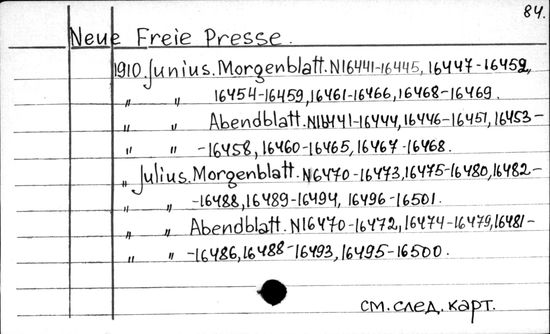 84.
Neue Freie Presse.
1910. Junius. Morgenblatt. N16441-16445, 16447-16452,
" " 16454-16459, 16461-16466, 16468-16469.
" " Abendblatt. N16441-16444, 16446-16451, 16453-
" " -16458, 16460-16465, 16467-16468.
" Julius. Morgenblatt. N16470-16473, 16475-16480, 16482-
" " -16488, 16489-16494, 16496-16501.
" " Abendblatt. N16470-16472, 16474-16479, 16481-
" " -16486, 16488-16493, 16495-16500.
см. след. карт.